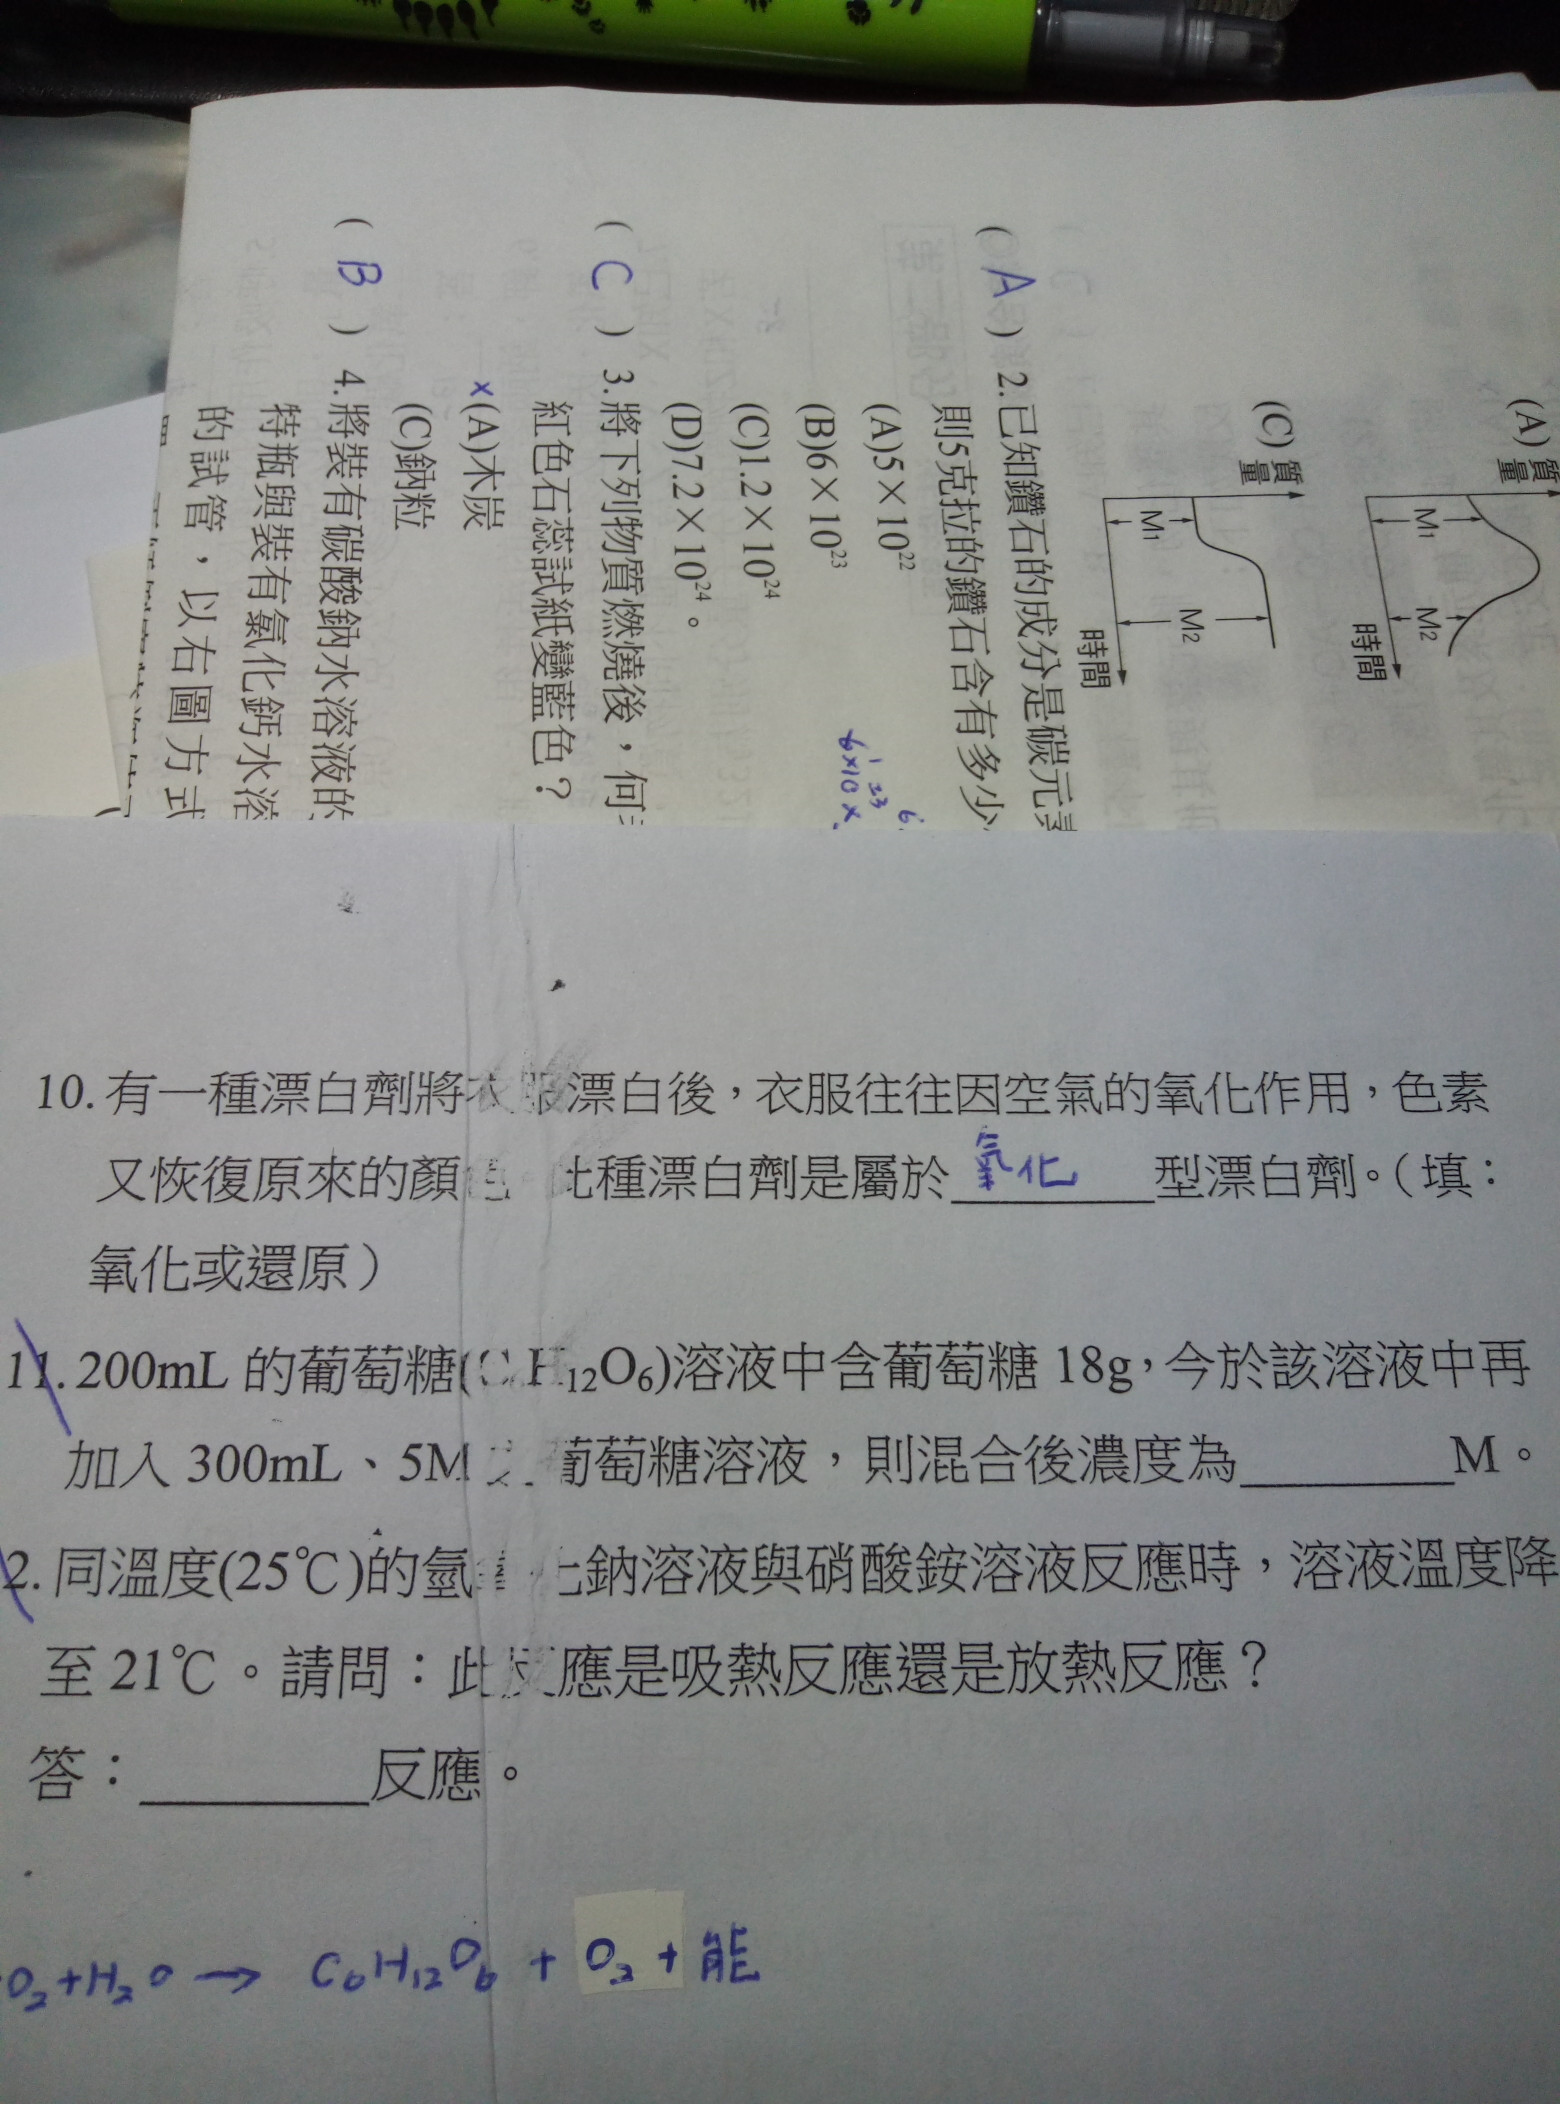 (A) 質量
M1
M2
時間
(C) 質量
M1
M2
時間
( A ) 2.已知鑽石的成分是碳元
則5克拉的鑽石含有多少
(A)5×10²²
(B)6×10²³
(C)1.2×10²⁴
(D)7.2×10²⁴。
6×10²³×
( C ) 3.將下列物質燃燒後，何
紅色石蕊試紙變藍色？
×(A)木炭
(C)鈉粒
( B ) 4.將裝有碳酸鈉水溶液的
特瓶與裝有氯化鈣水溶
的試管，以右圖方式
10. 有一種漂白劑將衣服漂白後，衣服往往因空氣的氧化作用，色素
又恢復原來的顏色 此種漂白劑是屬於 氧化 型漂白劑。（填：
氧化或還原）
11. 200mL 的葡萄糖(C H₁₂O₆)溶液中含葡萄糖 18g，今於該溶液中再
加入 300mL、5M 之葡萄糖溶液，則混合後濃度為________M。
2. 同溫度(25℃)的氫氧化鈉溶液與硝酸銨溶液反應時，溶液溫度降
至 21℃。請問：此反應是吸熱反應還是放熱反應？
答：________反應。
O₂+H₂O → C₆H₁₂O₆ + O₂ + 能